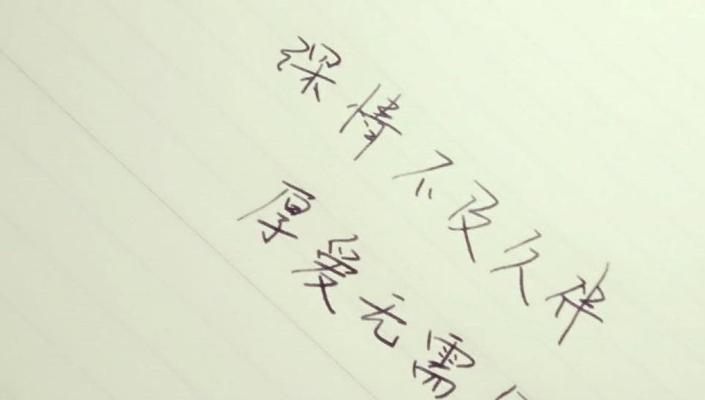 深情不及久伴
厚爱无需